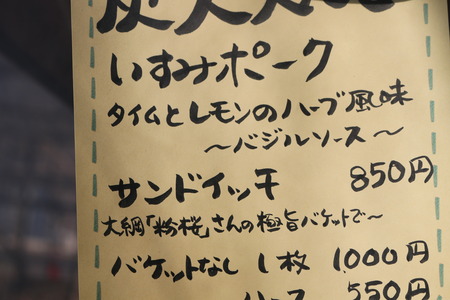 いすみポーク
タイムとレモンのハーブ風味
～バジルソース～
サンドイッモ 850円
大網「粉桜」さんの極旨バケットで～
バケットなし 1枚 1000円
ハース 550円